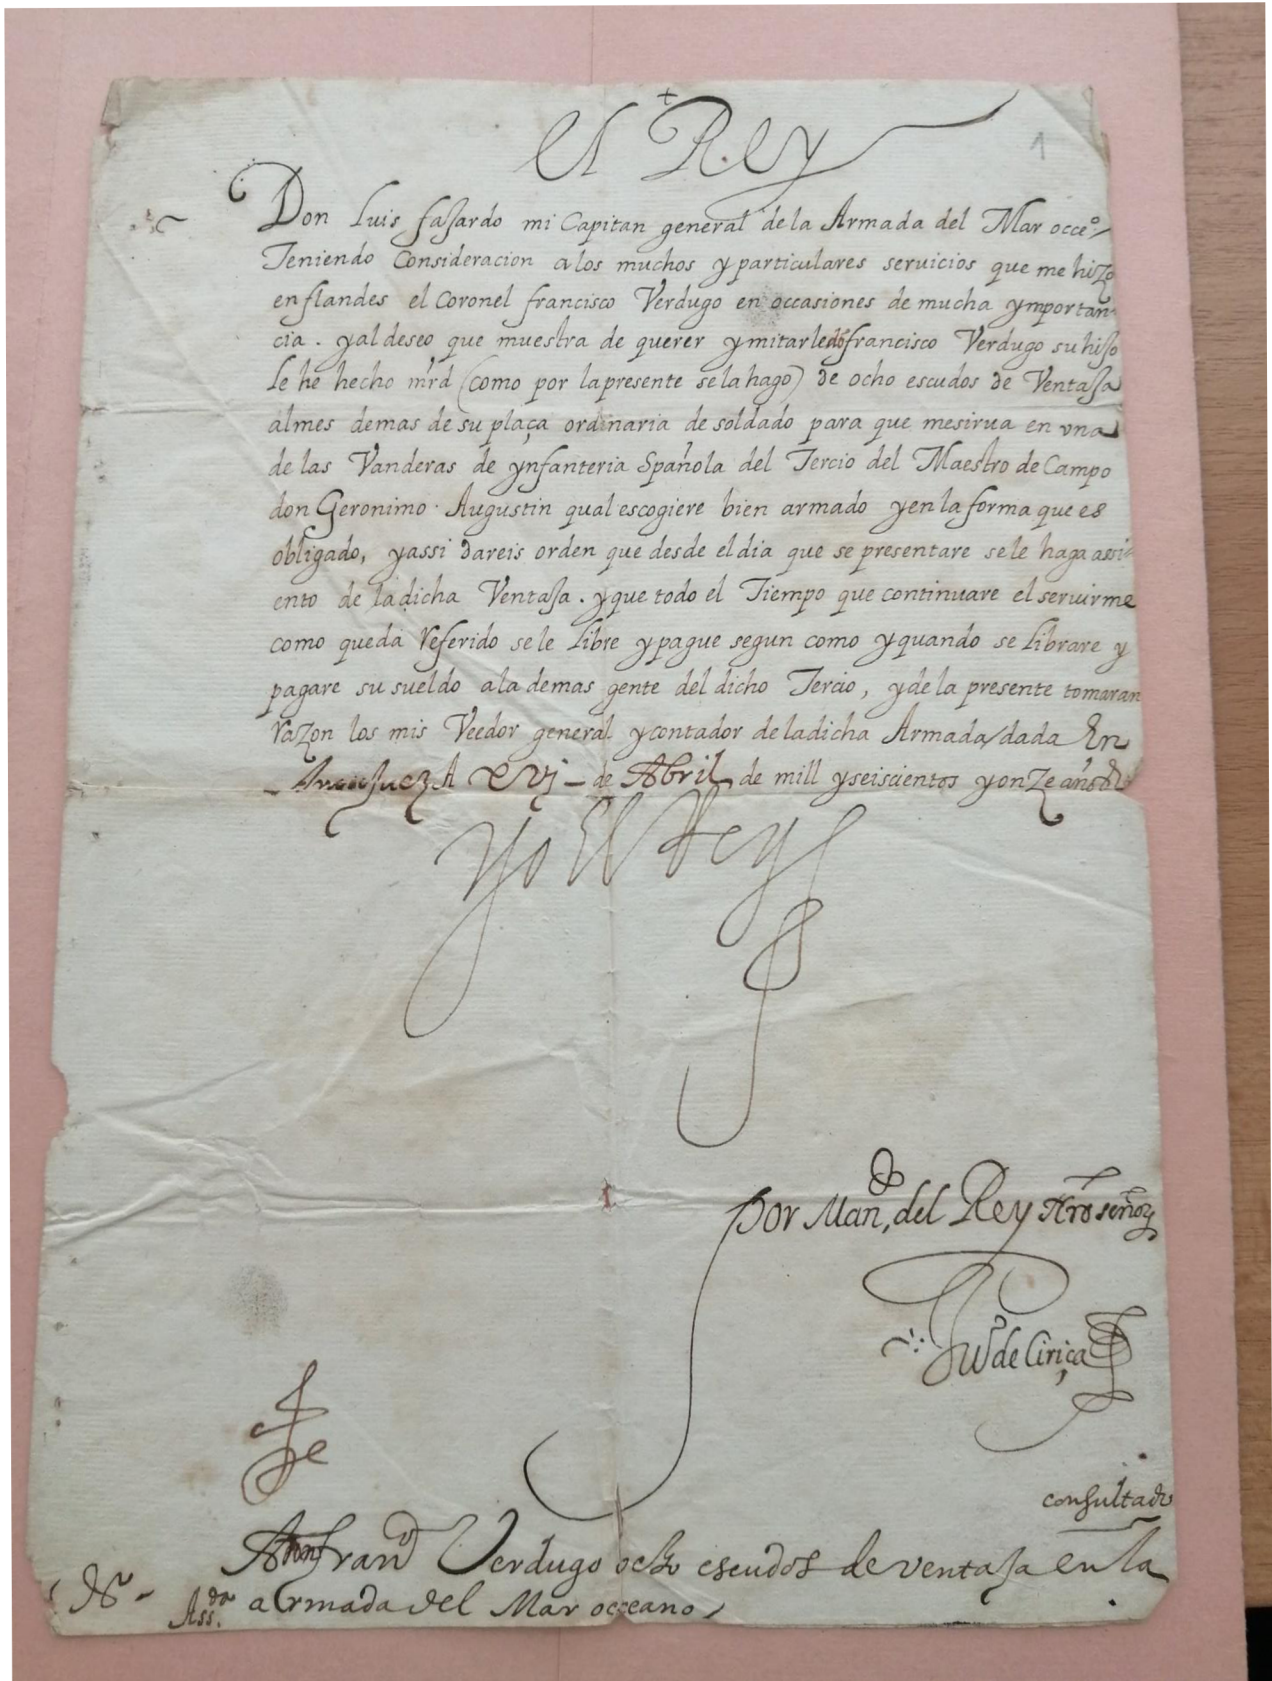 +
el Rey
1
Don Luis faJardo mi Capitan general de la Armada del Mar occeº/
Teniendo Consideracion alos muchos y particulares seruicios que me hizo
en flandes el Coronel francisco Verdugo en occasiones de mucha ymportan
cia . yal deseo que muestra de querer ymitarle don francisco Verdugo su hiJo
Le he hecho mrd (como por lapresente se la hago) de ocho escudos de VentaJa
al mes demas de su plaça ordinaria de soldado para que mesirua en vna
de las Vanderas de ynfanteria Spañola del Tercio del Maestro de Campo
don Geronimo Augustin qual escogiere bien armado yen la forma que es
obligado, yassi dareis orden que desde el dia que se presentare sele haga assi
ento de ladicha VentaJa . yque todo el Tiempo que continuare el seruirme
como queda Referido sele Libre ypague segun como yquando se Librare y
pagare su sueldo ala demas gente del dicho Tercio, ydela presente tomaran
Razon los mis Veedor general ycontador de ladicha Armada/dada En
AranJuez A xvj - de Abril de mill yseiscientos yonze años
Yo El Rey
Por Man, del Rey nro señor
de Ciriça
consultado
A Don franco Verdugo ocho escudos de ventaJa en la
armada del Mar occeano/